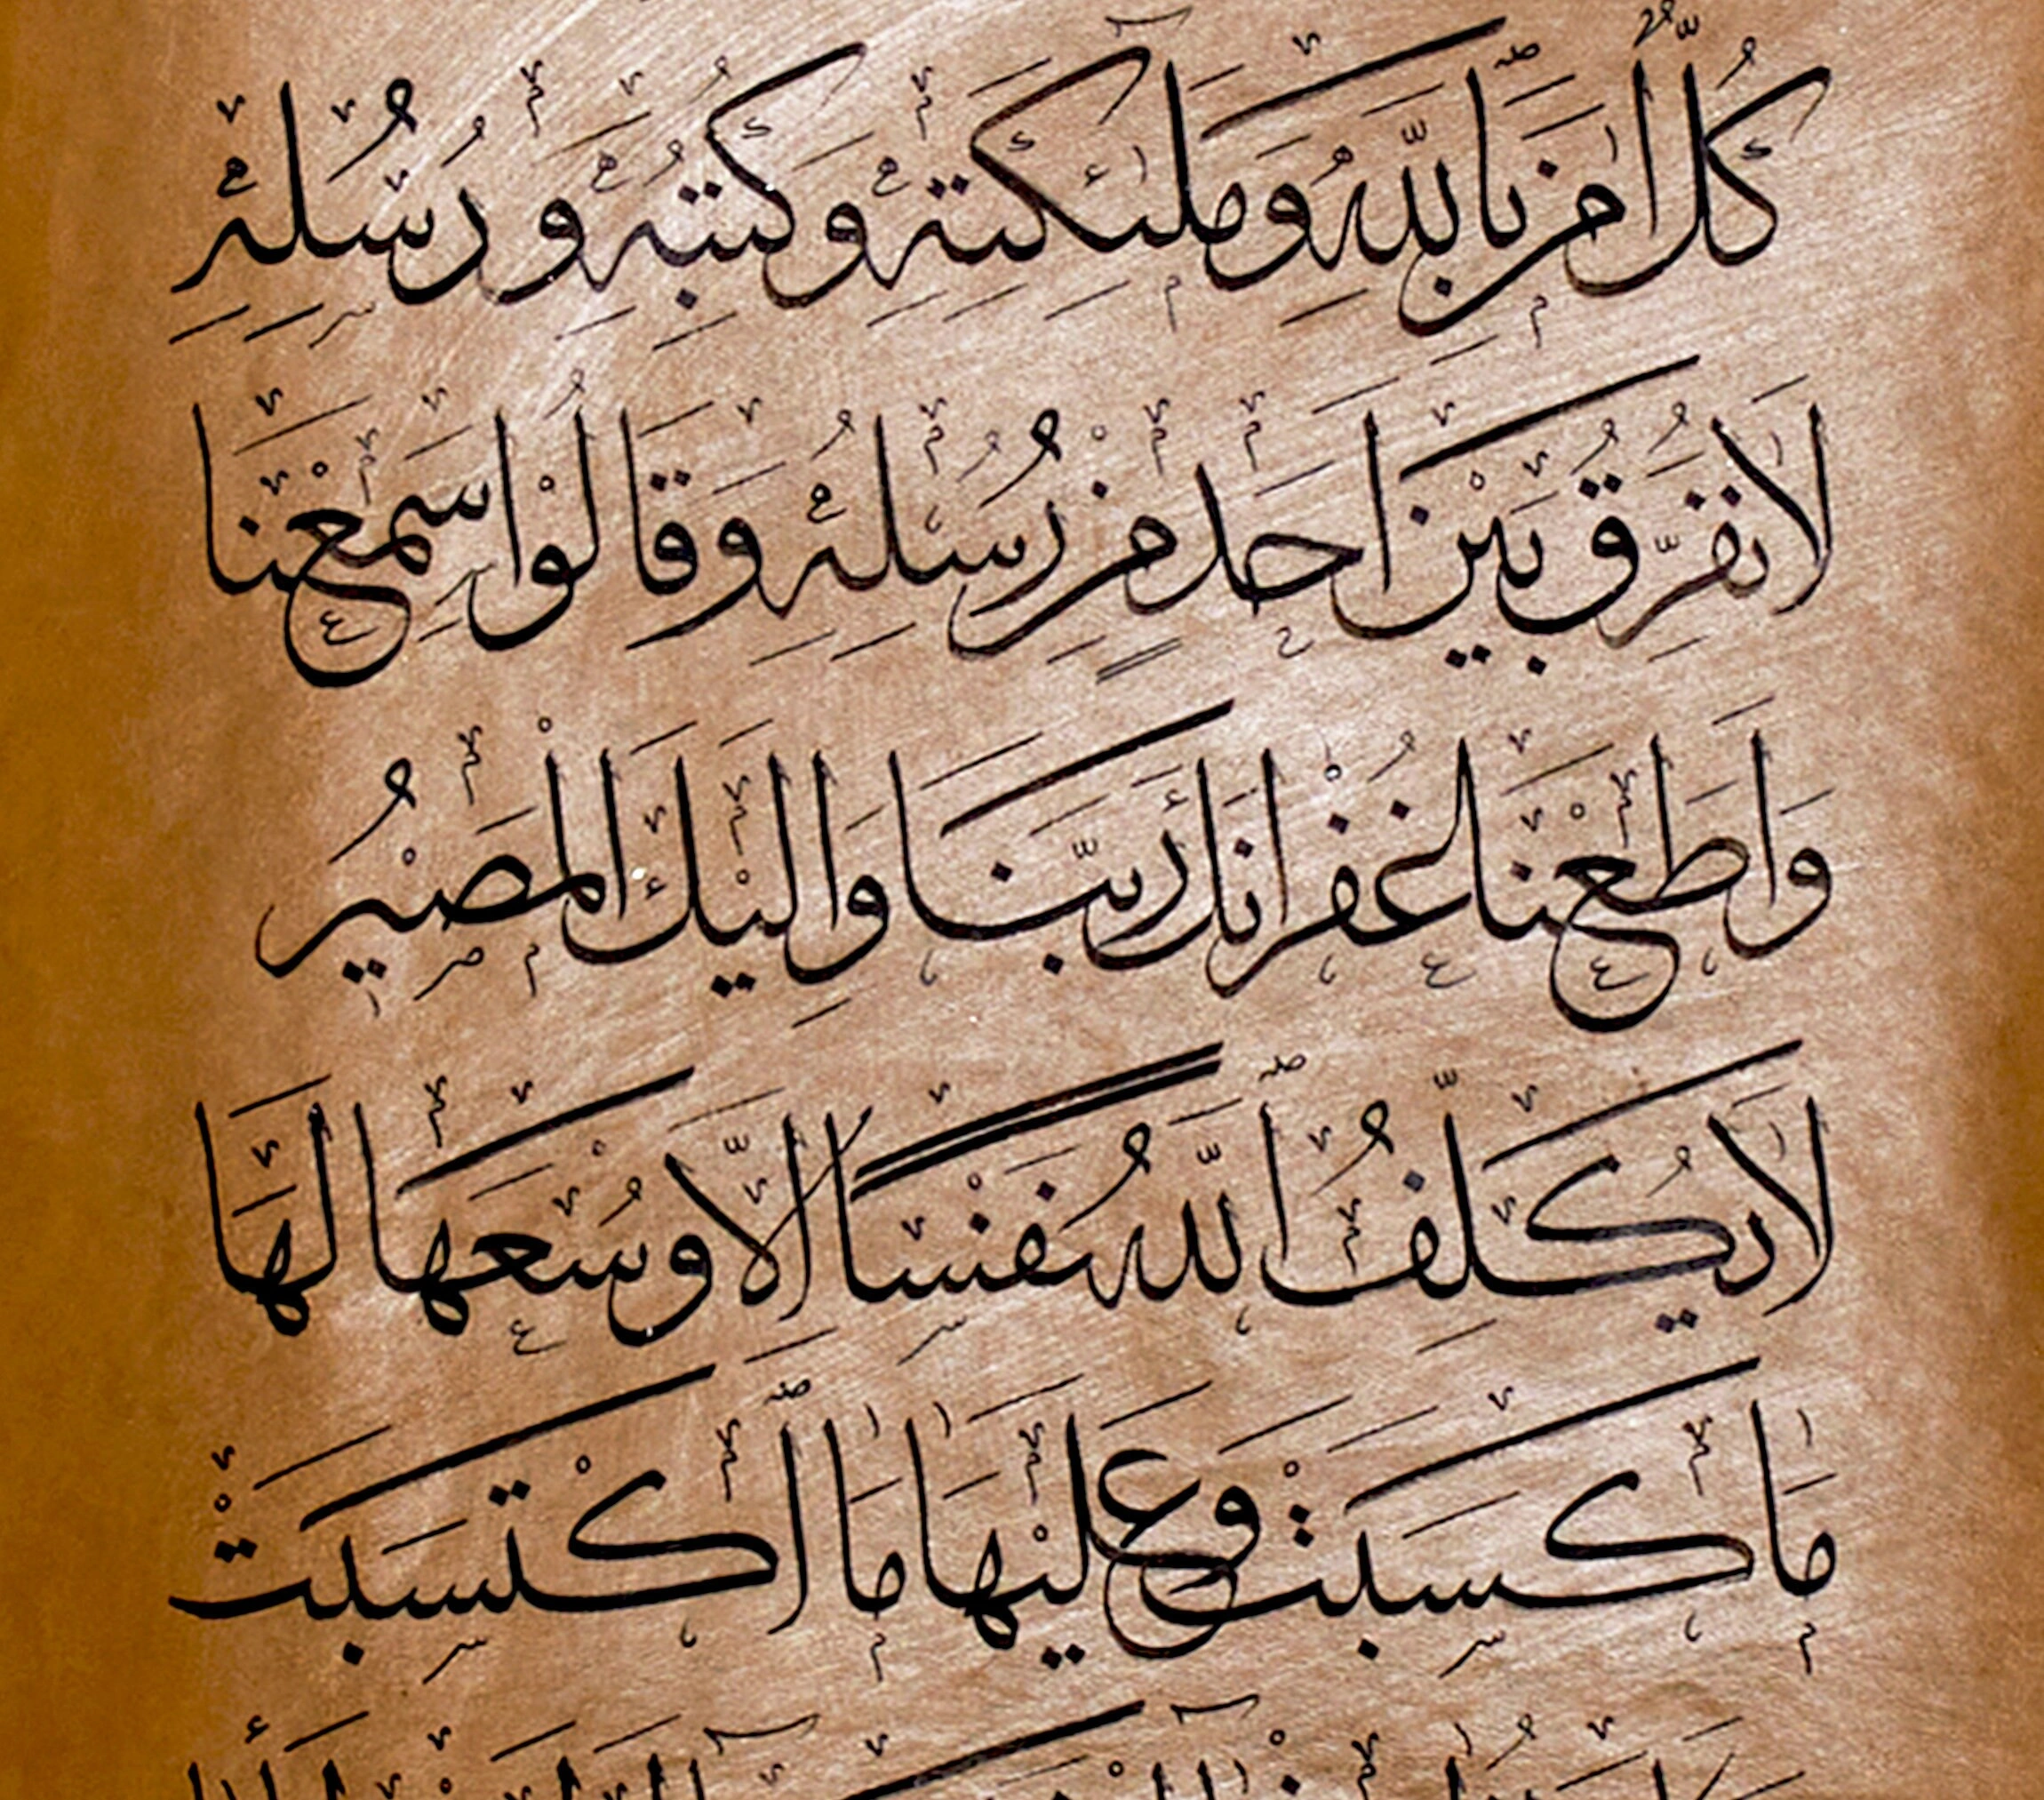 كُلٌّ اٰمَنَ بِاللّٰهِ وَمَلٰئِكَتِهٖ وَكُتُبِهٖ وَرُسُلِهٖ
لَا نُفَرِّقُ بَيْنَ اَحَدٍ مِنْ رُسُلِهٖ وَقَالُوا سَمِعْنَا
وَاَطَعْنَا غُفْرَانَكَ رَبَّنَا وَاِلَيْكَ الْمَصِيْرُ
لَا يُكَلِّفُ اللّٰهُ نَفْسًا اِلَّا وُسْعَهَا لَهَا
مَا كَسَبَتْ وَعَلَيْهَا مَا اكْتَسَبَتْ